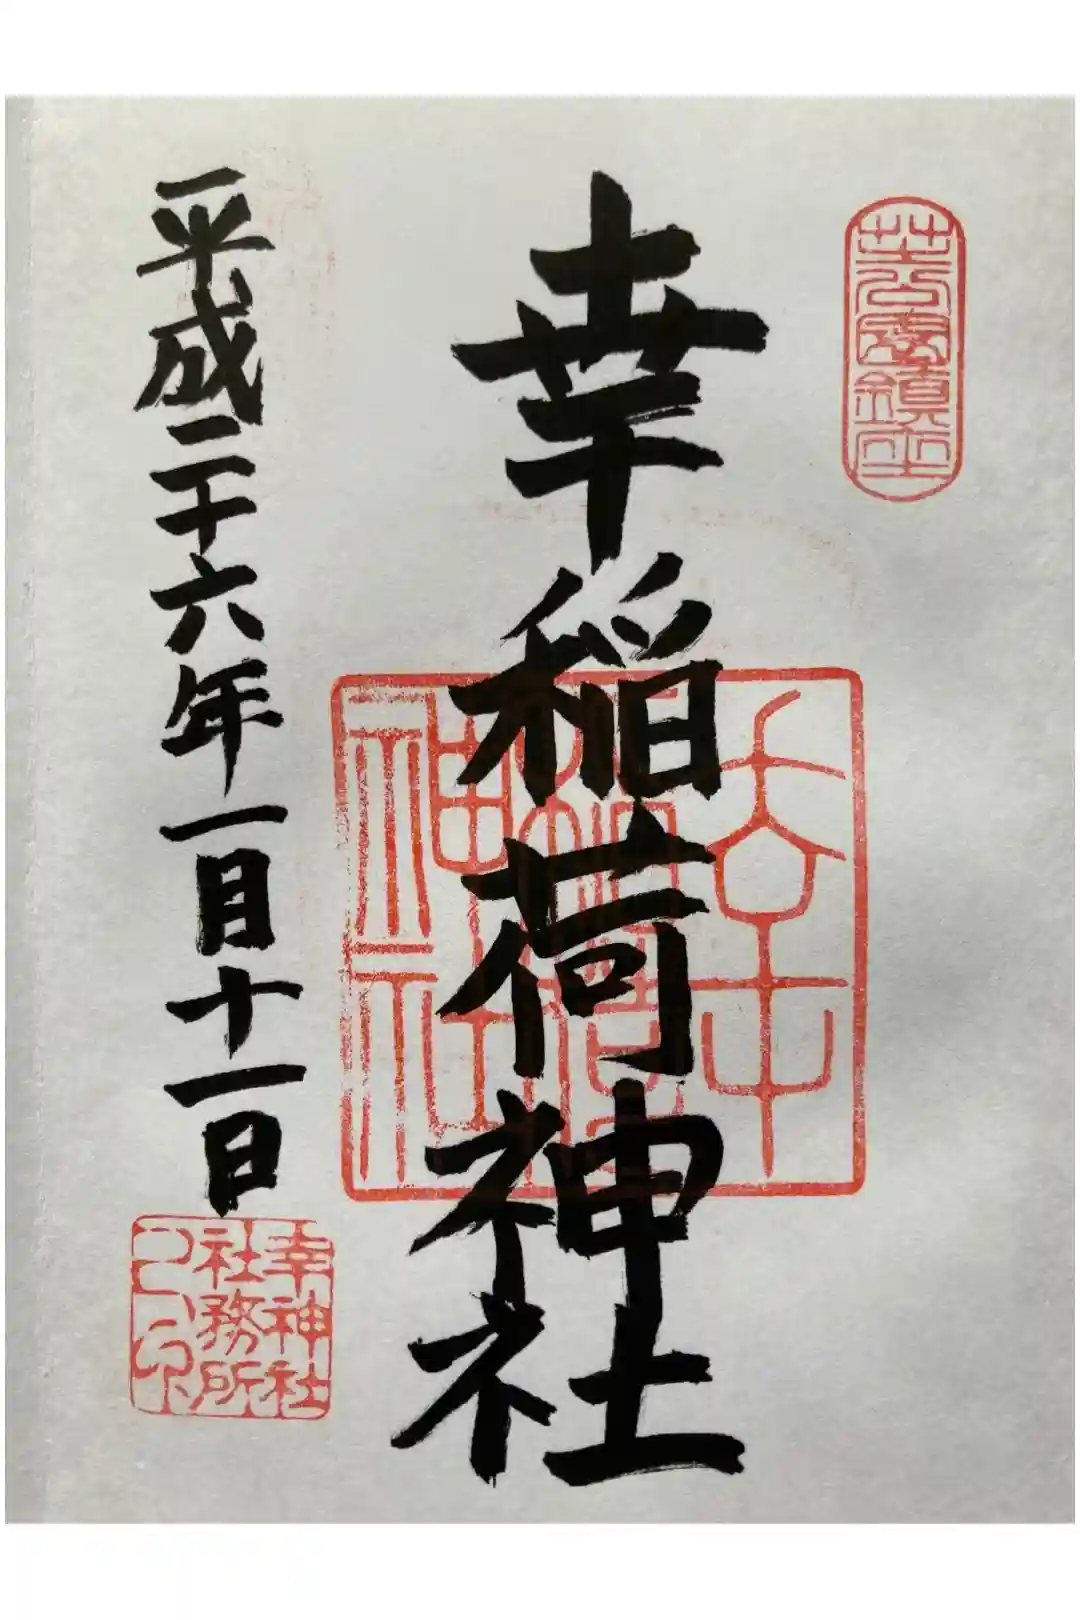 芝公園鎮座
幸稲荷神社
幸稲荷神社
平成二十六年一月十一日
幸神社
社務所
之印